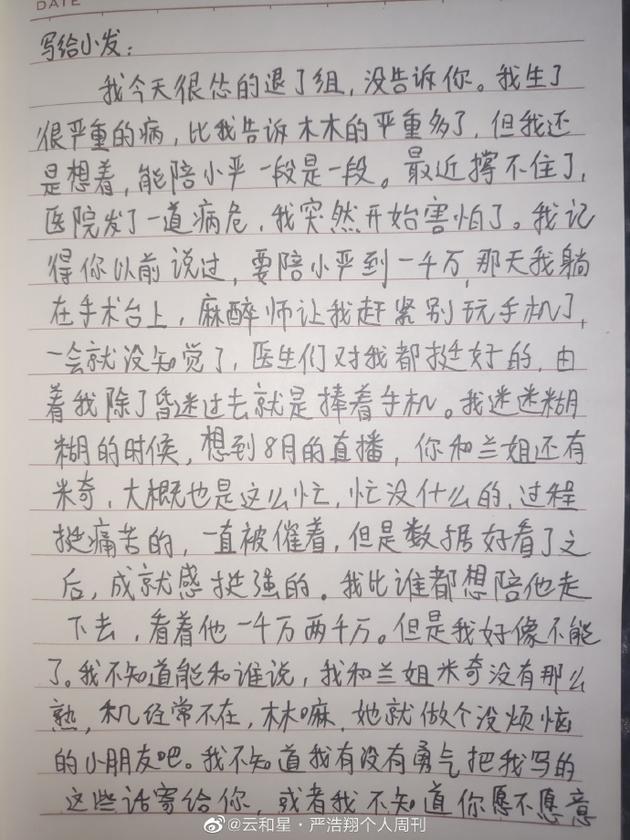 DATE
写给小发：
我今天很怂的退了组，没告诉你。我生了
很严重的病，比我告诉木木的严重多了，但我还
是想着，能陪小严一段是一段。最近撑不住了，
医院发了一道病危，我突然开始害怕了。我记
得你以前说过，要陪小严到一千万，那天我躺
在手术台上，麻醉师让我赶紧别玩手机了，
一会就没知觉了，医生们对我都挺好的，由
着我除了昏迷过去就是捧着手机。我迷迷糊
糊的时候，想到8月的直播，你和兰姐还有
米奇，大概也是这么忙，忙没什么的，过程
挺痛苦的，一直被催着，但是数据好看了之
后，成就感挺强的。我比谁都想陪他走
下去，看着他一千万两千万。但是我好像不能
了。我不知道能和谁说，我和兰姐米奇没有那么
熟，和几经常不在，林林嘛，她就做个没烦恼
的小朋友吧。我不知道我有没有勇气把我写的
这些话寄给你，或者我不知道你愿不愿意
@云和星·严浩翔个人周刊